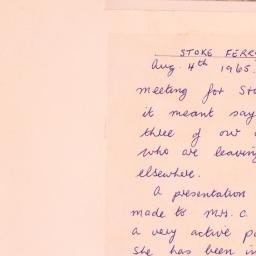 STOKE FERR
Aug. 4th 1965.
meeting for Sto
it meant say
three of our
who are leaving
elsewhere.
A presentation
made to Mrs. C.
a very active pa
She has been in